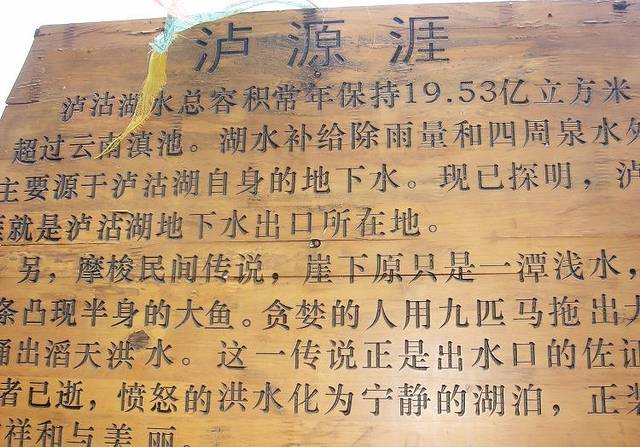 泸源涯
泸沽湖水总容积常年保持19.53亿立方米
超过云南滇池。湖水补给除雨量和四周泉水外
主要源于泸沽湖自身的地下水。现已探明，泸
就是泸沽湖地下水出口所在地。
另，摩梭民间传说，崖下原只是一潭浅水，
条凸现半身的大鱼。贪婪的人用九匹马拖出大
涌出滔天洪水。这一传说正是出水口的佐证
者已逝，愤怒的洪水化为宁静的湖泊，正装
祥和与美丽。